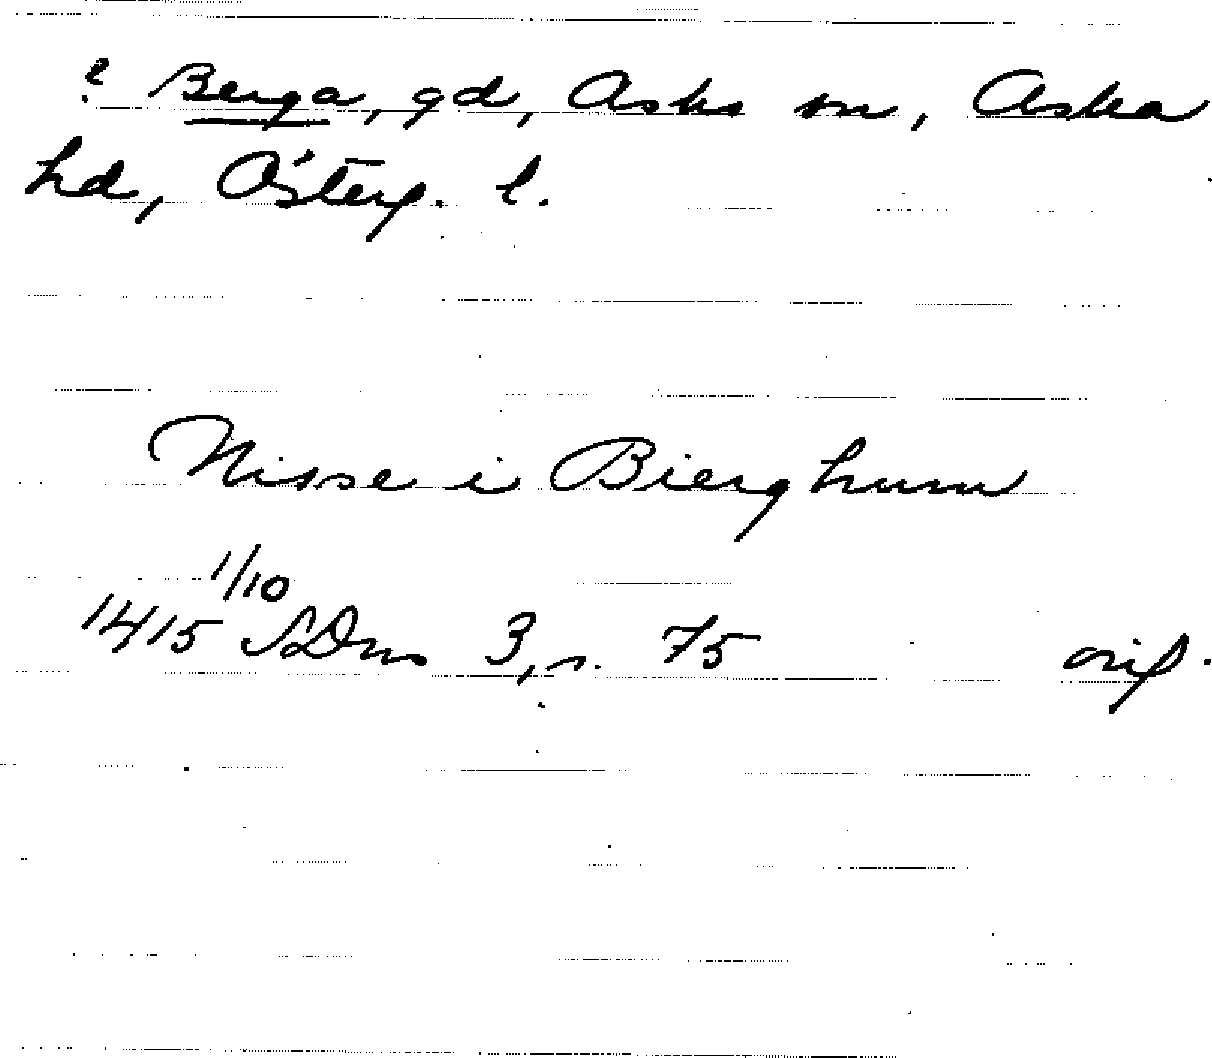 ? Berga, gd, Asks sn, Aska
hd, Österg. l.
Nisse i Bierghum
1/10
1415 SDns 3, s. 75 orig.